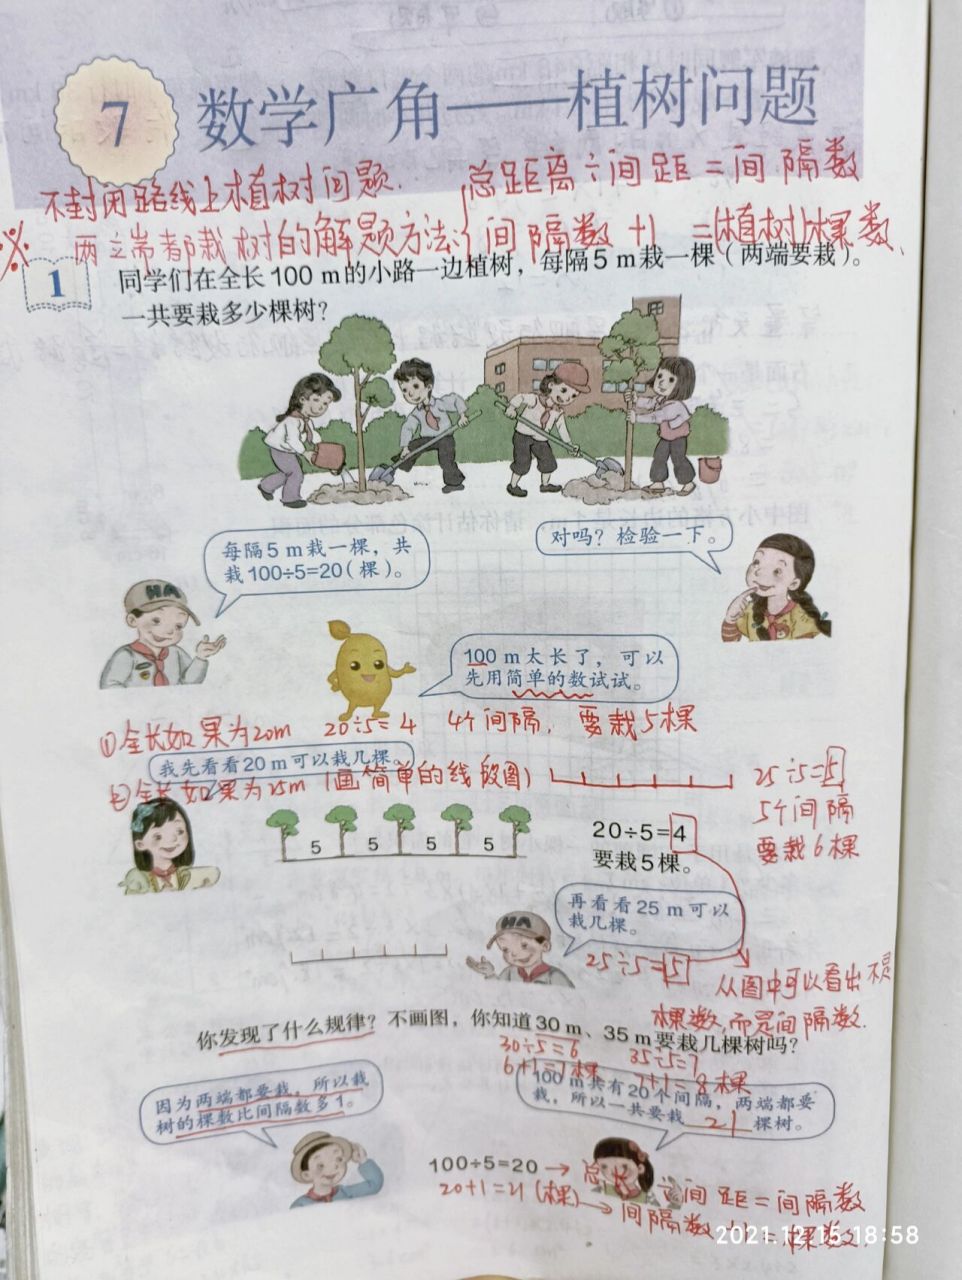 7 数学广角——植树问题
不封闭路线上植树问题.
总距离÷间距=间隔数
※ 两端都栽树的解题方法:
间隔数+1=(植树)棵数.
1 同学们在全长100 m的小路一边植树，每隔5 m栽一棵（两端要栽）。
一共要栽多少棵树？
每隔5 m栽一棵，共
栽100÷5=20(棵)。
对吗？检验一下。
100 m太长了，可以
先用简单的数试试。
①全长如果为20m 20÷5=4 4个间隔, 要栽5棵
我先看看20 m可以栽几棵。
②全长如果为25m (画简单的线段图)
25÷5=5
5个间隔
要栽6棵
5 5 5 5
20÷5=4
要栽5棵。
再看看25 m可以
栽几棵。
25÷5=5
从图中可以看出不是
棵数,而是间隔数.
你发现了什么规律？不画图，你知道30 m、35 m要栽几棵树吗？
30÷5=6 35÷5=7
6+1=7棵 7+1=8棵
因为两端都要栽，所以栽
树的棵数比间隔数多1。
100 m共有20个间隔，两端都要
栽，所以一共要栽21棵树。
100÷5=20→总长÷间距=间隔数
20+1=21(棵)→间隔数+1=棵数.
2021.12.15 18:58